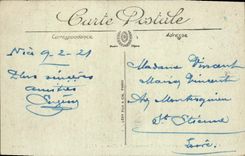 Carte Postale
Correspondance
Adresse
Nice 9-2-21
Plus sincères
amitiés
Madame Vincent
Maison Vincent
St Etienne
Loire